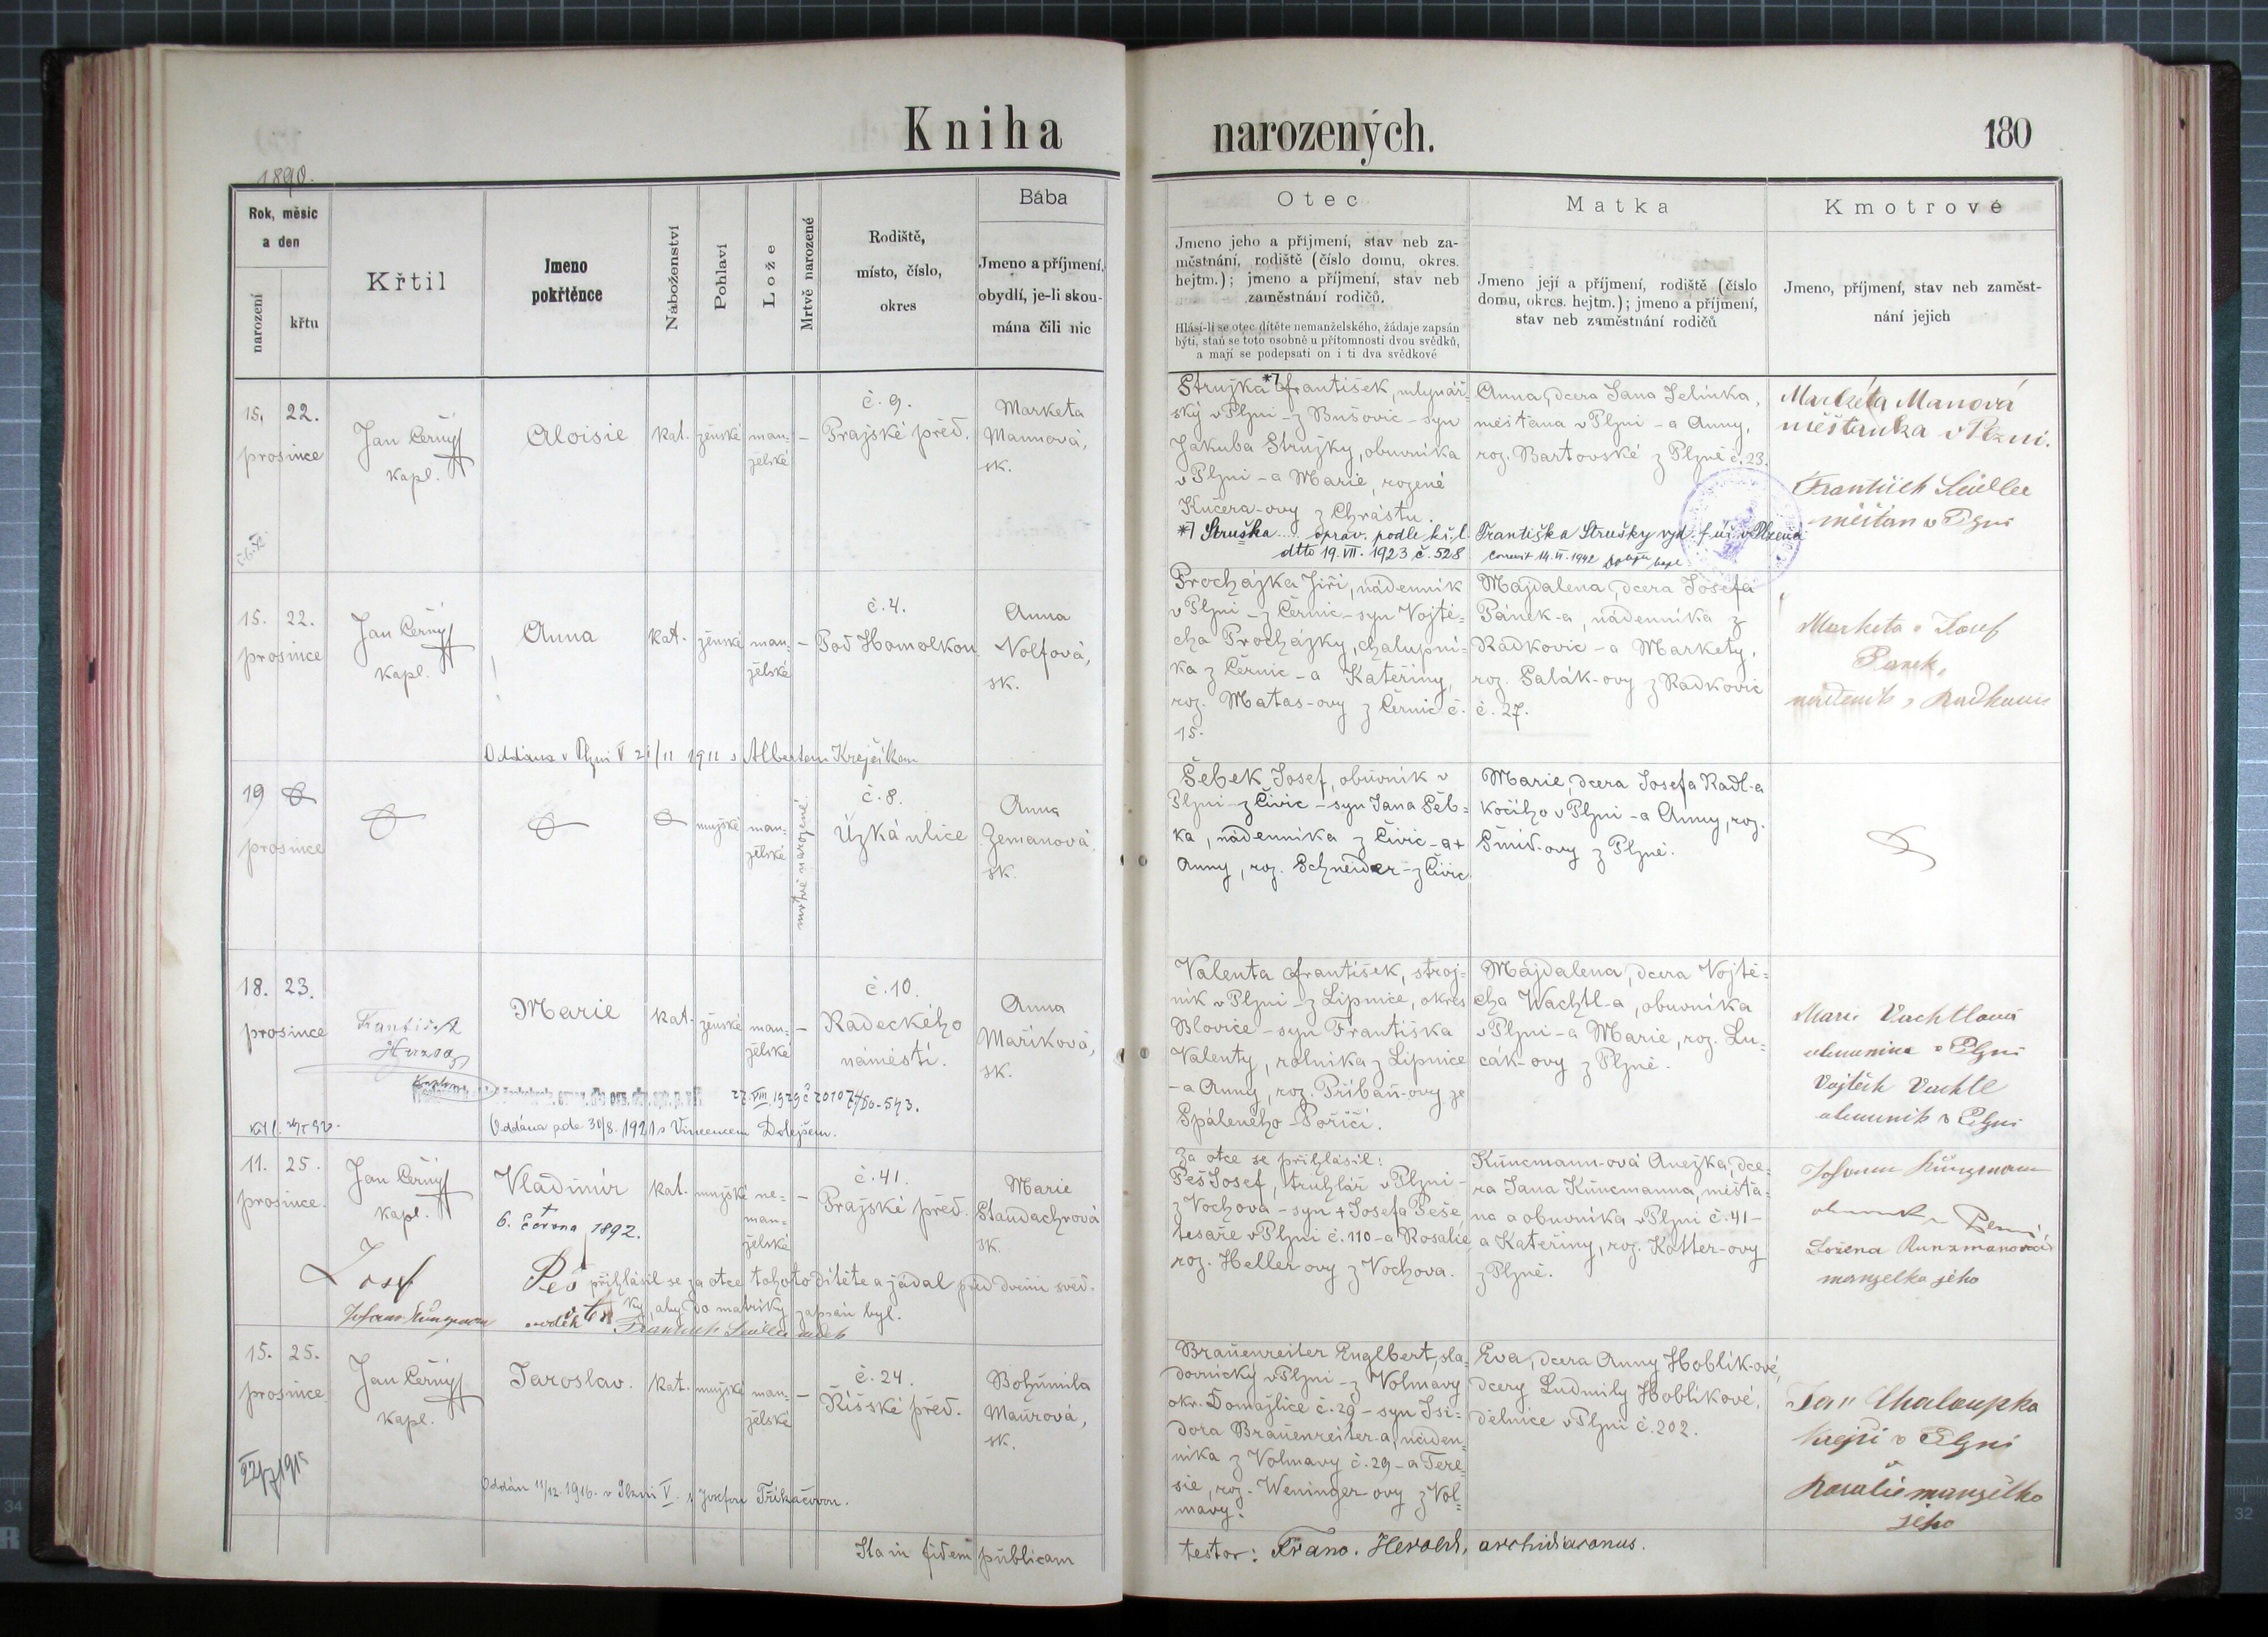 Kniha
narozených.
180
1890.
Rok, měsíc
a den
narození
křtu
Křtil
Jmeno
pokřtěnce
Náboženství
Pohlaví
Lože
Mrtvě narozené
Rodiště,
místo, číslo,
okres
Bába
Jmeno a příjmení,
obydlí, je-li skou-
mána čili nic
Otec
Jmeno jeho a příjmení, stav neb za-
městnání, rodiště (číslo domu, okres.
hejtm.); jmeno a příjmení, stav neb
zaměstnání rodičů.
Hlásí-li se otec dítěte nemanželského, žádaje zapsán
býti, staň se toto osobně u přítomnosti dvou svědků,
a mají se podepsati on i ti dva svědkové
Matka
Jmeno její a příjmení, rodiště (číslo
domu, okres. hejtm.); jmeno a příjmení,
stav neb zaměstnání rodičů
Kmotrové
Jmeno, příjmení, stav neb zaměst-
nání jejich
15. 22.
prosince
Jan Černý
kapl.
Aloisie
kat.
ženské
man-
želské
–
č. 9.
Pražské před.
Marketa
Mannová,
sk.
Stružka *) František, mlynář-
ský v Plzni – z Bušovic – syn
Jakuba Stružky, obuvníka
v Plzni – a Marie, rozené
Kučera-ovy z Chrástu.
Anna, dcera Jana Jelínka,
měšťana v Plzni – a Anny,
roz. Bartovské z Plzně č. 23.
Markéta Manová
měšťanka v Plzni.
František Seidler
měšťan v Plzni
*) Struška ... oprav. podle kř. l. Františka Strušky vyd. f. úř. v Plzeni
dtto 19. VII. 1923 č. 528
15. 22.
prosince
Jan Černý
kapl.
Anna
kat.
ženské
man-
želské
–
č. 4.
Pod Homolkou
Anna
Nolfová,
sk.
Procházka Jiří, nádenník
v Plzni – z Černic – syn Vojtě-
cha Procházky, chalupní-
ka z Černic – a Kateřiny,
roz. Matas-ovy z Černic č.
15.
Majdalena, dcera Josefa
Pánek-a, nádenníka z
Radkovic – a Markety,
roz. Salák-ovy z Radkovic
č. 27.
Marketa a Josef
Panek,
Oddána v Plzni V 21/11 1911 s Albertem Krejčíkem
19
prosince
mužské
man-
želské
mrtvě narozené.
č. 8.
Úzká ulice
Anna
Zemanová,
sk.
Šebek Josef, obuvník v
Plzni – z Čivic – syn Jana Šeb-
ka, nádenníka z Čivic – a +
Anny, roz. Schneider – z Čivic
Marie, dcera Josefa Radl-a
kočího v Plzni – a Anny, roz.
Šmíd-ovy z Plzně.
18. 23.
prosince
František
Herzog
Marie
kat.
ženské
man-
želské
–
č. 10.
Radeckého
náměstí.
Anna
Maříková,
sk.
Valenta František, stroj-
ník v Plzni – z Lipnice, okres
Blovice – syn Františka
Valenty, rolníka z Lipnice
– a Anny, roz. Příbaň-ovy ze
Spáleného Poříčí.
Majdalena, dcera Vojtě-
cha Wachtl-a, obuvníka
v Plzni – a Marie, roz. Lu-
cák-ovy z Plzně.
Marie Vachtlová
v Plzni
Vojtěch Vachtl
obuvník v Plzni
27. VIII. 1929
Oddána pde 30/8. 1921 s Vincencem Dolejšem.
11. 25.
prosince.
Jan Černý
kapl.
Vladimír
†
6. června 1892.
kat.
mužské
ne-
man-
želské
–
č. 41.
Pražské před.
Marie
Staudachrová
sk.
Za otce se přihlásil:
Peš Josef, truhlář v Plzni –
z Vochova – syn + Josefa Peše
tesaře v Plzni č. 110 – a Rosalie
roz. Heller ovy z Vochova.
Küncmann-ová Anežka, dce-
ra Jana Küncmanna, měšťa-
na a obuvníka v Plzni č. 41 –
a Kateřiny, roz. Kotter-ovy
z Plzně.
Johann Künzmann
Božena Kunzmanová
manželka jeho
Josef Peš přihlásil se za otce tohoto dítěte a žádal před dvěmi svěd-
ky, aby do matriky zapsán byl.
Johann Künzmann svědek František Seidler svědek
15. 25.
prosince
Jan Černý
kapl.
Jaroslav.
kat.
mužské
man-
želské
–
č. 24.
Říšské před.
Bohumila
Maurová,
sk.
Brauenreiter Englbert, sla-
dovnický v Plzni – z Volmavy
okr. Domažlice č. 29 – syn Isi-
dora Brauenreiter-a, náden-
níka z Volmavy č. 29 – a Tere-
sie, roz. Weninger ovy z Vol-
mavy.
Eva, dcera Anny Hoblík-ové,
dcery Ludmily Hoblíkové,
dělnice v Plzni č. 202.
Jan Chaloupka
krejčí v Plzni
Rosalie manželka
jeho
Oddán 11/12. 1916. v Plzni V. s Josefou Třikačovou.
Ita in fidem publicam
testor: Franc. Herold, archidiaconus.
34
32